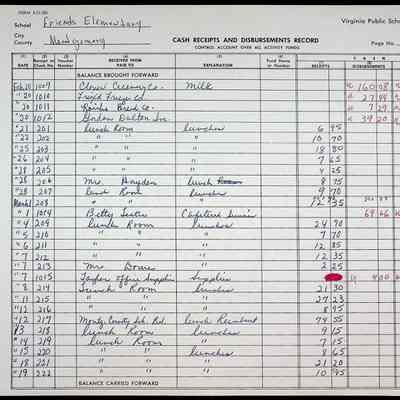 FORM A11-50
School Friends Elementary
Virginia Public Scho
City
County Montgomery
CASH RECEIPTS AND DISBURSEMENTS RECORD
CONTROL ACCOUNT OVER ALL ACTIVITY FUNDS
Page No.
(1) (2) (3) (4)
DATE Receipt or Check No. Voucher No. RECEIVED FROM PAID TO EXPLANATION CASH
RECEIPTS DISBURSEMENTS
BALANCE BROUGHT FORWARD
Feb. 20 1009 Clover Creamery Co. Milk 160 08
" 20 1010 Co. 27 99
" 20 1011 Bread Co. 7 29
" 20 1012 Gordon Inc. 39 20
" 21 201 Lunch Room lunches 6 95
" 22 202 " " " 10 70
" 25 203 " " " 18 80
" 26 204 " " " 7 65
" 28 205 " " " 4 25
" 28 206 Mrs. lunch 8 75
" 28 207 Lunch Room lunches 9 70
March 1 208 " " " 12 35
" 1 1014 Betty Cafeteria 69 66
" 4 209 Lunch Room lunches 24 70
" 5 210 " " " 7 70
" 6 211 " " " 12 85
" 7 212 " " " 12 35
" 7 213 Mrs. " 2 25
" 7 1015 Taylor Office Supplies Supplies 4 00
" 8 214 Lunch Room lunches 21 30
" 11 215 " " " 27 23
" 12 216 " " " 8 95
" 12 217 Montg. County Sch. Bd. lunch Reimburt 74 55
" 13 218 lunch Room lunches 9 15
" 14 219 lunch Room lunches 7 15
" 15 220 " " " 8 65
" 18 221 " " " 21 20
" 19 222 " " " 10 95
BALANCE CARRIED FORWARD